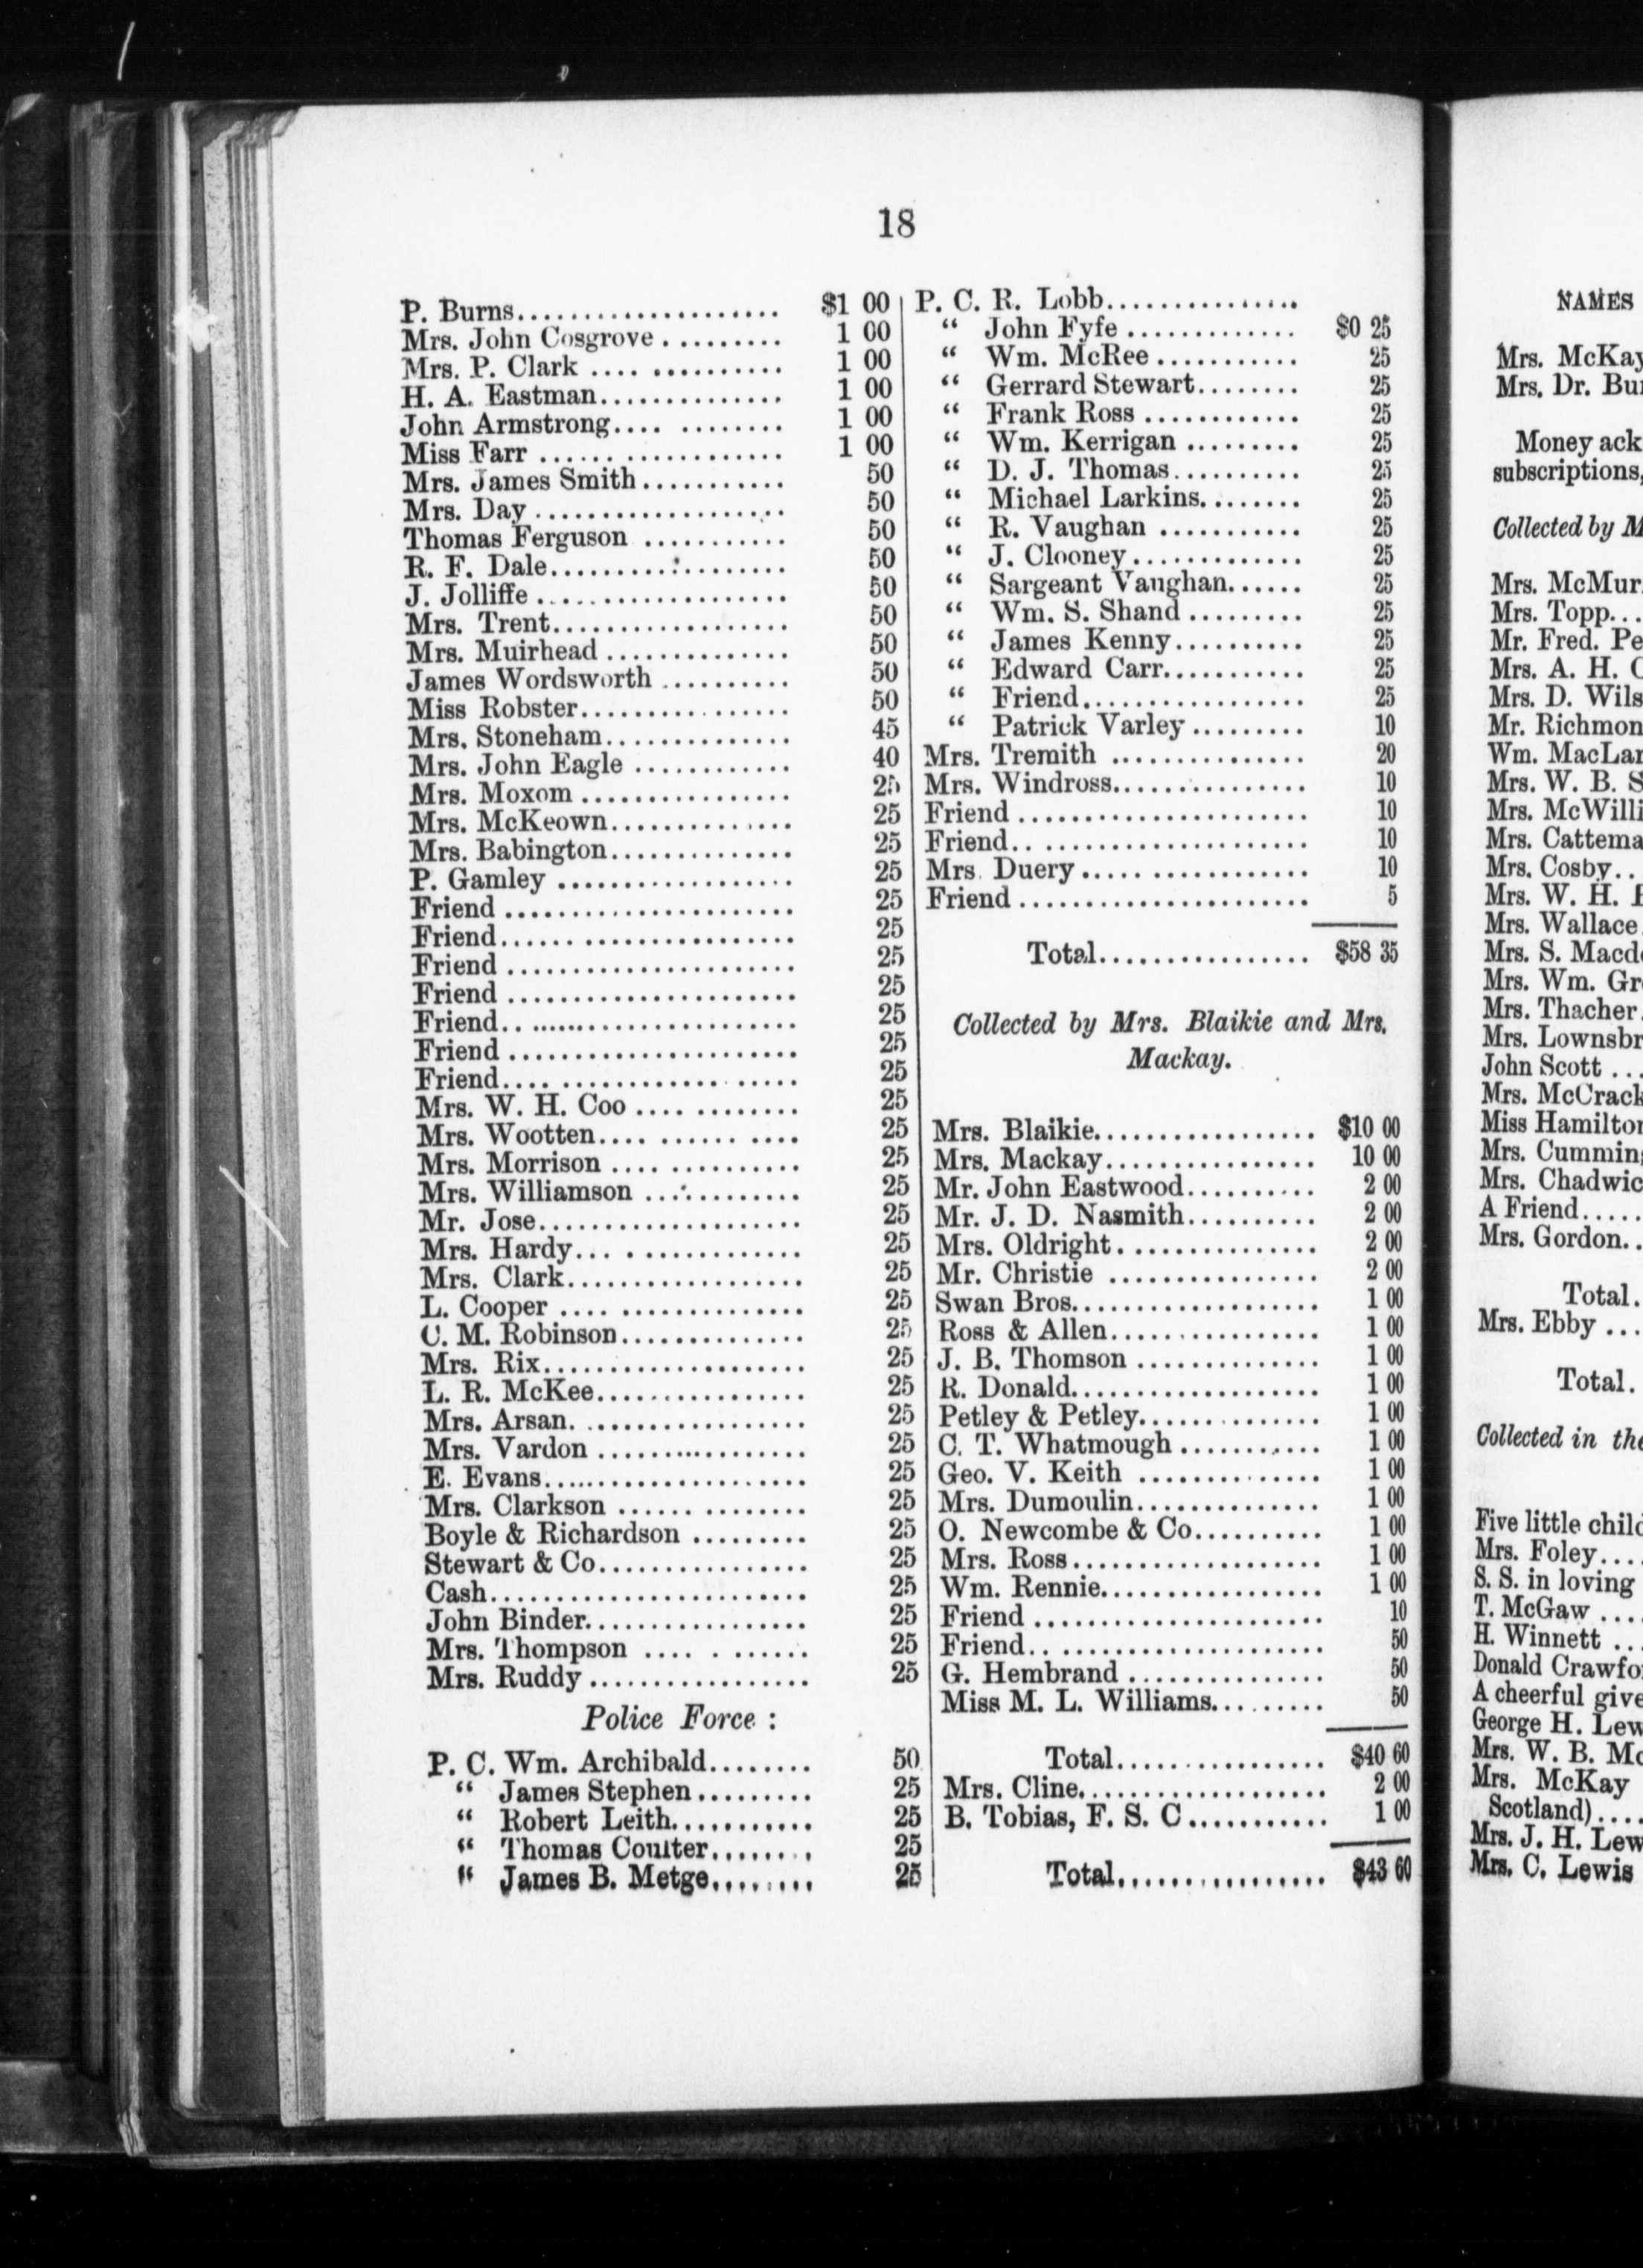 18
P. Burns..................... $1 00
Mrs. John Cosgrove ......... 1 00
Mrs. P. Clark .............. 1 00
H. A. Eastman.............. 1 00
John Armstrong.... ........ 1 00
Miss Farr .................. 1 00
Mrs. James Smith........... 50
Mrs. Day ................... 50
Thomas Ferguson ........... 50
R. F. Dale.................. 50
J. Jolliffe ................... 50
Mrs. Trent.................. 50
Mrs. Muirhead .............. 50
James Wordsworth .......... 50
Miss Robster................ 50
Mrs. Stoneham.............. 45
Mrs. John Eagle ............ 40
Mrs. Moxom ................ 25
Mrs. McKeown.............. 25
Mrs. Babington.............. 25
P. Gamley .................. 25
Friend ...................... 25
Friend...... ................ 25
Friend ...................... 25
Friend ...................... 25
Friend....................... 25
Friend ...................... 25
Friend.... .................. 25
Mrs. W. H. Coo .... ........ 25
Mrs. Wootten.... ...... .... 25
Mrs. Morrison .... .......... 25
Mrs. Williamson ............ 25
Mr. Jose.................... 25
Mrs. Hardy... .............. 25
Mrs. Clark.................. 25
L. Cooper .... .............. 25
C. M. Robinson.............. 25
Mrs. Rix.................... 25
L. R. McKee................ 25
Mrs. Arsan.................. 25
Mrs. Vardon ................ 25
E. Evans.................... 25
Mrs. Clarkson ...... ........ 25
Boyle & Richardson ......... 25
Stewart & Co................ 25
Cash........................ 25
John Binder................. 25
Mrs. Thompson .... . ...... 25
Mrs. Ruddy ................. 25
Police Force :
P. C. Wm. Archibald........ 50
“ James Stephen......... 25
“ Robert Leith........... 25
“ Thomas Coulter........ 25
“ James B. Metge........ 25
P. C. R. Lobb...............
“ John Fyfe ............. $0 25
“ Wm. McRee ........... 25
“ Gerrard Stewart........ 25
“ Frank Ross ............ 25
“ Wm. Kerrigan ......... 25
“ D. J. Thomas.......... 25
“ Michael Larkins........ 25
“ R. Vaughan ........... 25
“ J. Clooney............. 25
“ Sargeant Vaughan...... 25
“ Wm. S. Shand ......... 25
“ James Kenny.......... 25
“ Edward Carr........... 25
“ Friend................. 25
“ Patrick Varley ......... 10
Mrs. Tremith ............... 20
Mrs. Windross............... 10
Friend ...................... 10
Friend.. .................... 10
Mrs. Duery .................. 10
Friend ...................... 5
Total................ $58 35
Collected by Mrs. Blaikie and Mrs.
Mackay.
Mrs. Blaikie................. $10 00
Mrs. Mackay................ 10 00
Mr. John Eastwood.......... 2 00
Mr. J. D. Nasmith.......... 2 00
Mrs. Oldright................ 2 00
Mr. Christie ................ 2 00
Swan Bros................... 1 00
Ross & Allen................ 1 00
J. B. Thomson .............. 1 00
R. Donald................... 1 00
Petley & Petley.............. 1 00
C. T. Whatmough ........... 1 00
Geo. V. Keith .............. 1 00
Mrs. Dumoulin.............. 1 00
O. Newcombe & Co.......... 1 00
Mrs. Ross................... 1 00
Wm. Rennie................. 1 00
Friend ...................... 10
Friend...................... 50
G. Hembrand ............... 50
Miss M. L. Williams......... 50
Total................ $40 60
Mrs. Cline................... 2 00
B. Tobias, F. S. C........... 1 00
Total................ $43 60
NAMES
Mrs. McKay
Mrs. Dr. Bu
Money ack
subscriptions,
Collected by M
Mrs. McMur
Mrs. Topp...
Mr. Fred. Pe
Mrs. A. H. C
Mrs. D. Wils
Mr. Richmon
Wm. MacLar
Mrs. W. B. S
Mrs. McWilli
Mrs. Cattema
Mrs. Cosby..
Mrs. W. H.
Mrs. Wallace
Mrs. S. Macd
Mrs. Wm. Gr
Mrs. Thacher
Mrs. Lownsbr
John Scott ...
Mrs. McCrack
Miss Hamilton
Mrs. Cumming
Mrs. Chadwic
A Friend.....
Mrs. Gordon..
Total.
Mrs. Ebby ...
Total.
Collected in the
Five little child
Mrs. Foley....
S. S. in loving
T. McGaw ....
H. Winnett ...
Donald Crawfo
A cheerful give
George H. Lew
Mrs. W. B. Mc
Mrs. McKay
Scotland)....
Mrs. J. H. Lew
Mrs. C. Lewis